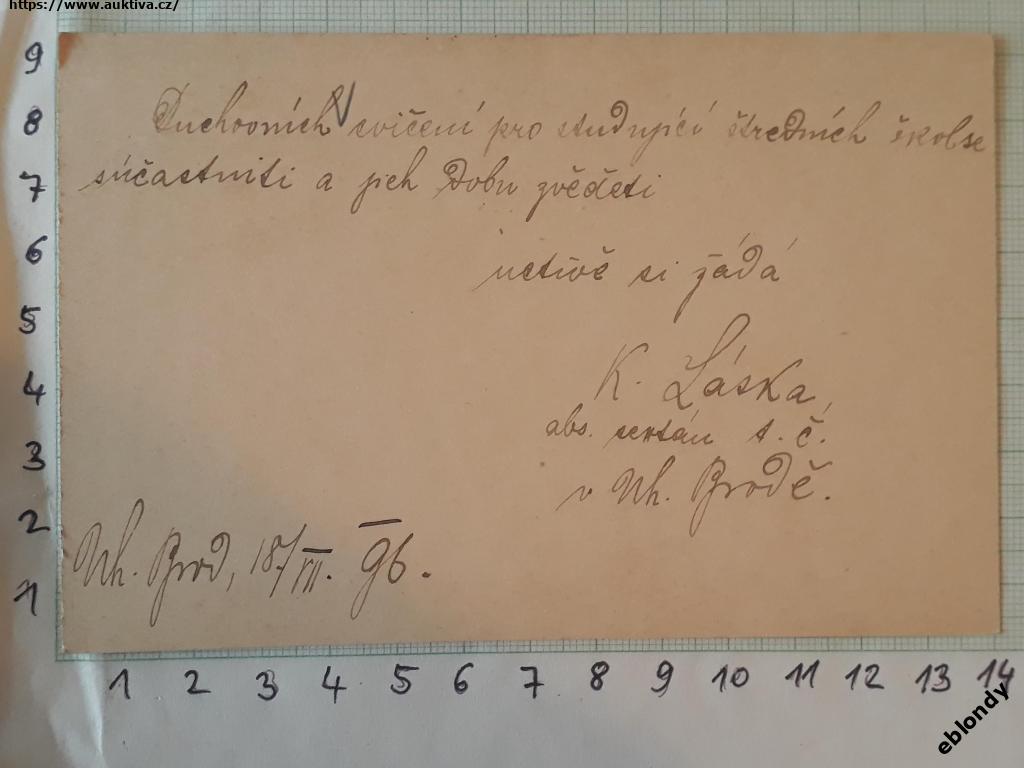 https://www.auktiva.cz/
Duchovních cvičení pro studující středních škol se
súčastniti a jich dobu zvěděti
uctivě si žádá
K. Láska,
abs. sextán t. č.
v Uh. Brodě.
Uh. Brod, 18/VII. 96.
9
8
7
6
5
4
3
2
1
1 2 3 4 5 6 7 8 9 10 11 12 13 14
eblondy